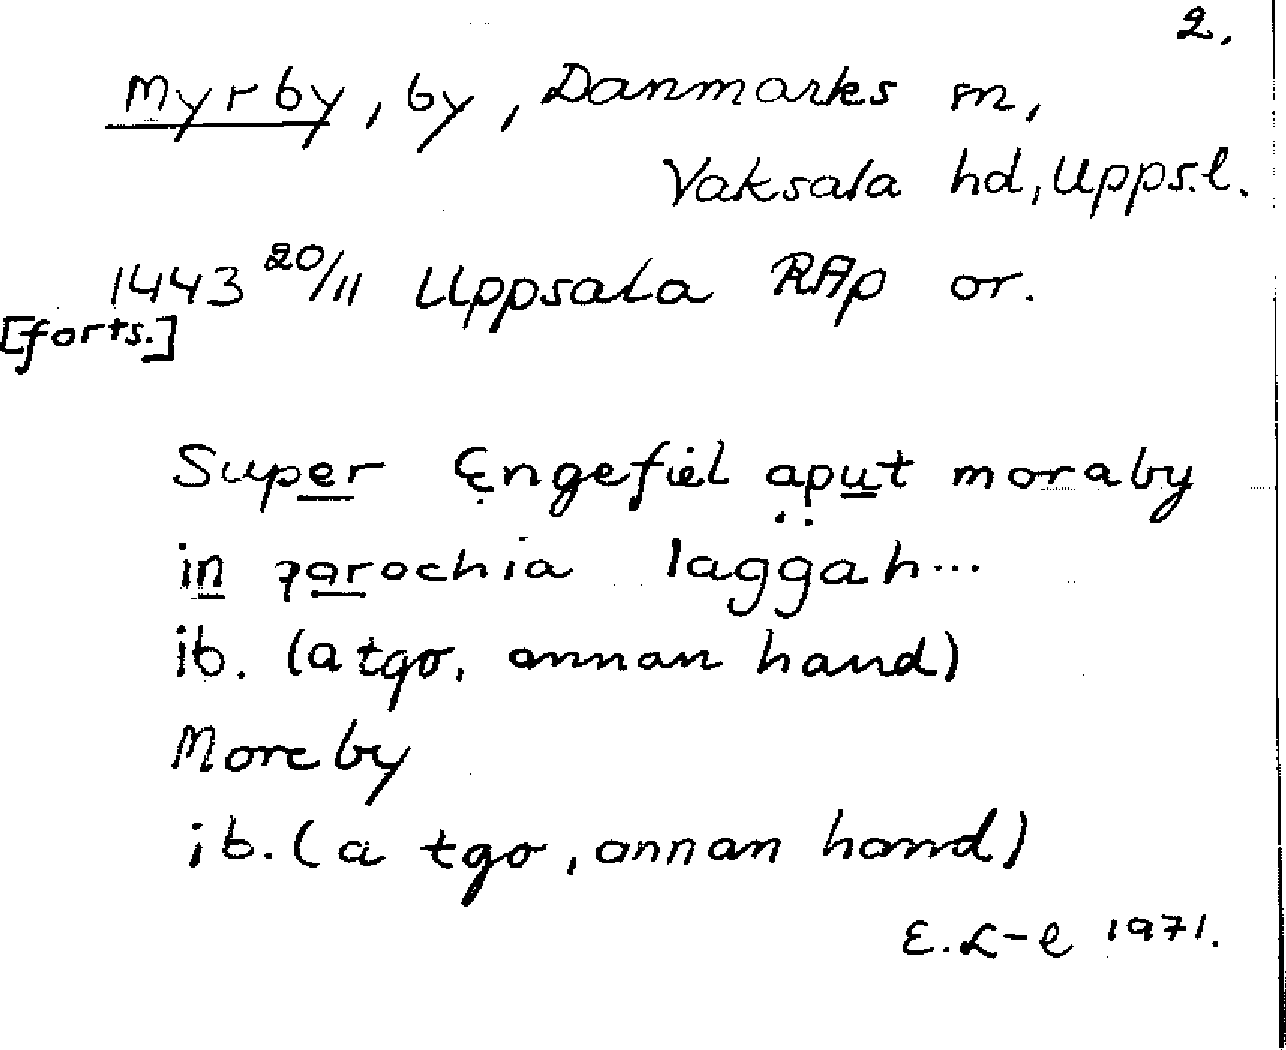 2.
Myrby, by, Danmarks sn,
Vaksala hd, Upps.l.
1443 20/11 Uppsala RAp or.
[forts.]
Super Engefiel aput moraby
in parochia laggah...
ib. (a tgo, annan hand)
Moreby
ib. (a tgo, annan hand)
E.L-e 1971.